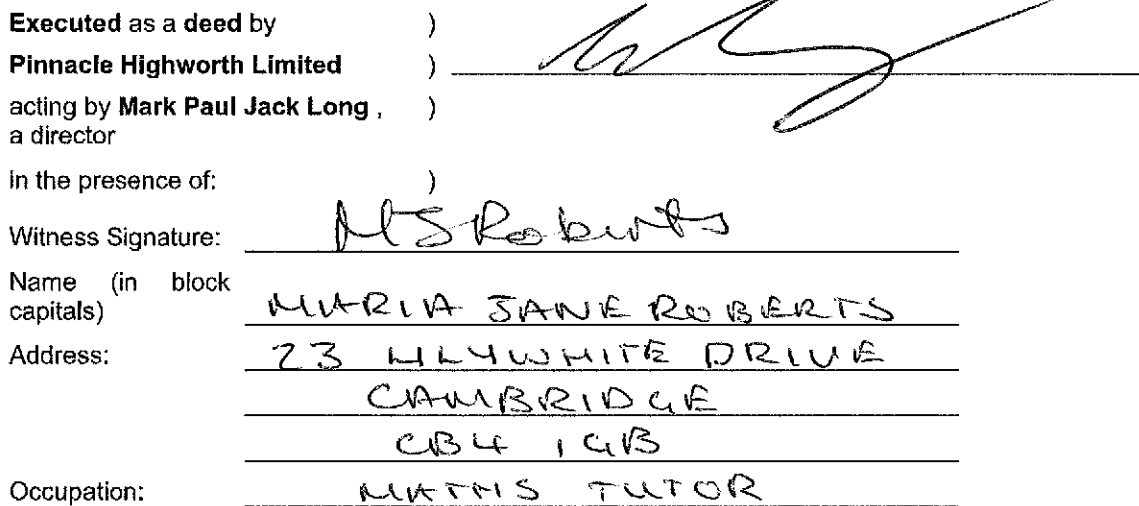 Executed as a deed by )
Pinnacle Highworth Limited )
acting by Mark Paul Jack Long , )
a director
in the presence of: )
Witness Signature: MJRoberts
Name (in block
capitals) MARIA JANE ROBERTS
Address: 23 LILYWHITE DRIVE
CAMBRIDGE
CB4 1GB
Occupation: MATHS TUTOR